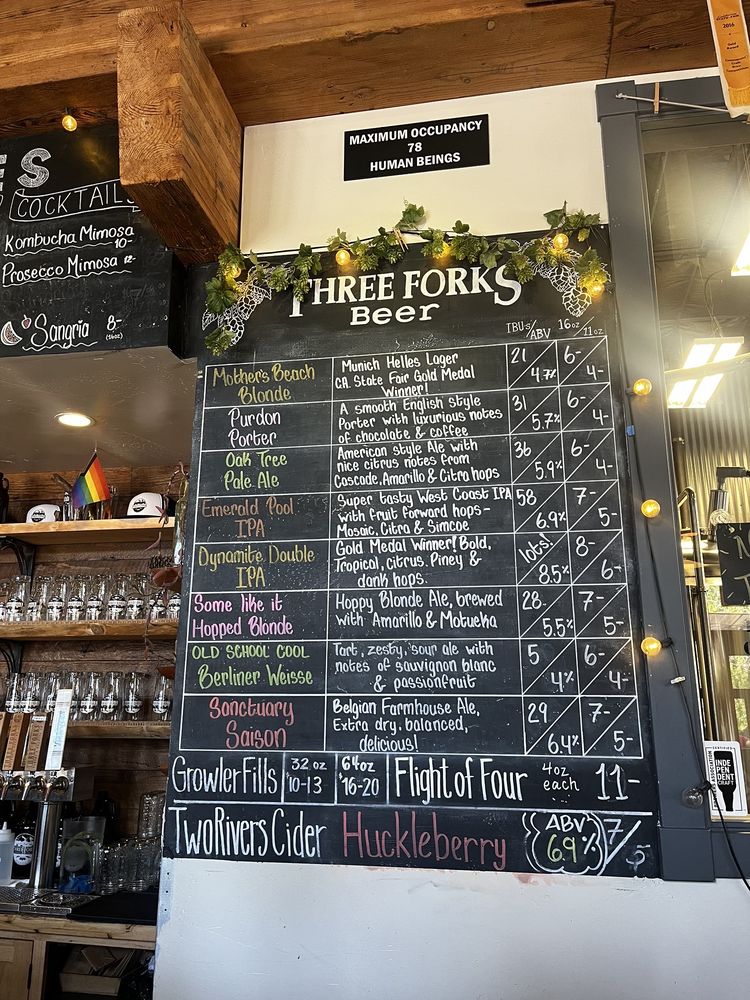 MAXIMUM OCCUPANCY
78
HUMAN BEINGS
ES
COCKTAILS
Kombucha Mimosa
10-
Prosecco Mimosa 12-
Sangria 8-
(16oz)
THREE FORKS
Beer
IBU's/ABV 16oz 11oz
Mother's Beach
Blonde
Munich Helles Lager
CA State Fair Gold Medal
Winner!
21
4.7%
6-
4-
Purdon
Porter
A smooth English style
Porter with luxurious notes
of chocolate & coffee
31
5.7%
6-
4-
Oak Tree
Pale Ale
American style Ale with
nice citrus notes from
Cascade, Amarillo & Citra hops
36
5.9%
6-
4-
Emerald Pool
IPA
Super tasty West Coast IPA
with fruit forward hops-
Mosaic, Citra & Simcoe
58
6.9%
7-
5-
Dynamite Double
IPA
Gold Medal Winner! Bold,
Tropical, citrus, Piney &
dank hops.
lots!
8.5%
8-
6-
Some like it
Hopped Blonde
Hoppy Blonde Ale, brewed
with Amarillo & Motueka
28
5.5%
7-
5-
OLD SCHOOL COOL
Berliner Weisse
Tart, zesty, sour ale with
notes of sauvignon blanc
& passionfruit
5
4%
6-
4-
Sanctuary
Saison
Belgian Farmhouse Ale,
Extra dry, balanced,
delicious!
29
6.4%
7-
5-
Growler Fills
32 oz
$10-13
64oz
$16-20
Flight of Four
4oz
each
11-
Two Rivers Cider Huckleberry
ABV
6.9%
7/5
CERTIFIED
INDE
PEN
DENT
CRAFT